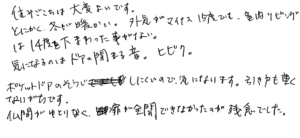 住みごこちは大変よいです。
とにかく、冬が暖かい。外気がマイナス15度でも、室内リビング
は14度を下まわった事がない。
気になるのはドアの閉まる音。ヒビク。
ポケットドアのそうじ しにくいので、気になります。引き戸も重く
なりがちです。
仏間がせまくなく、扉が全開できなかったのが残念でした。